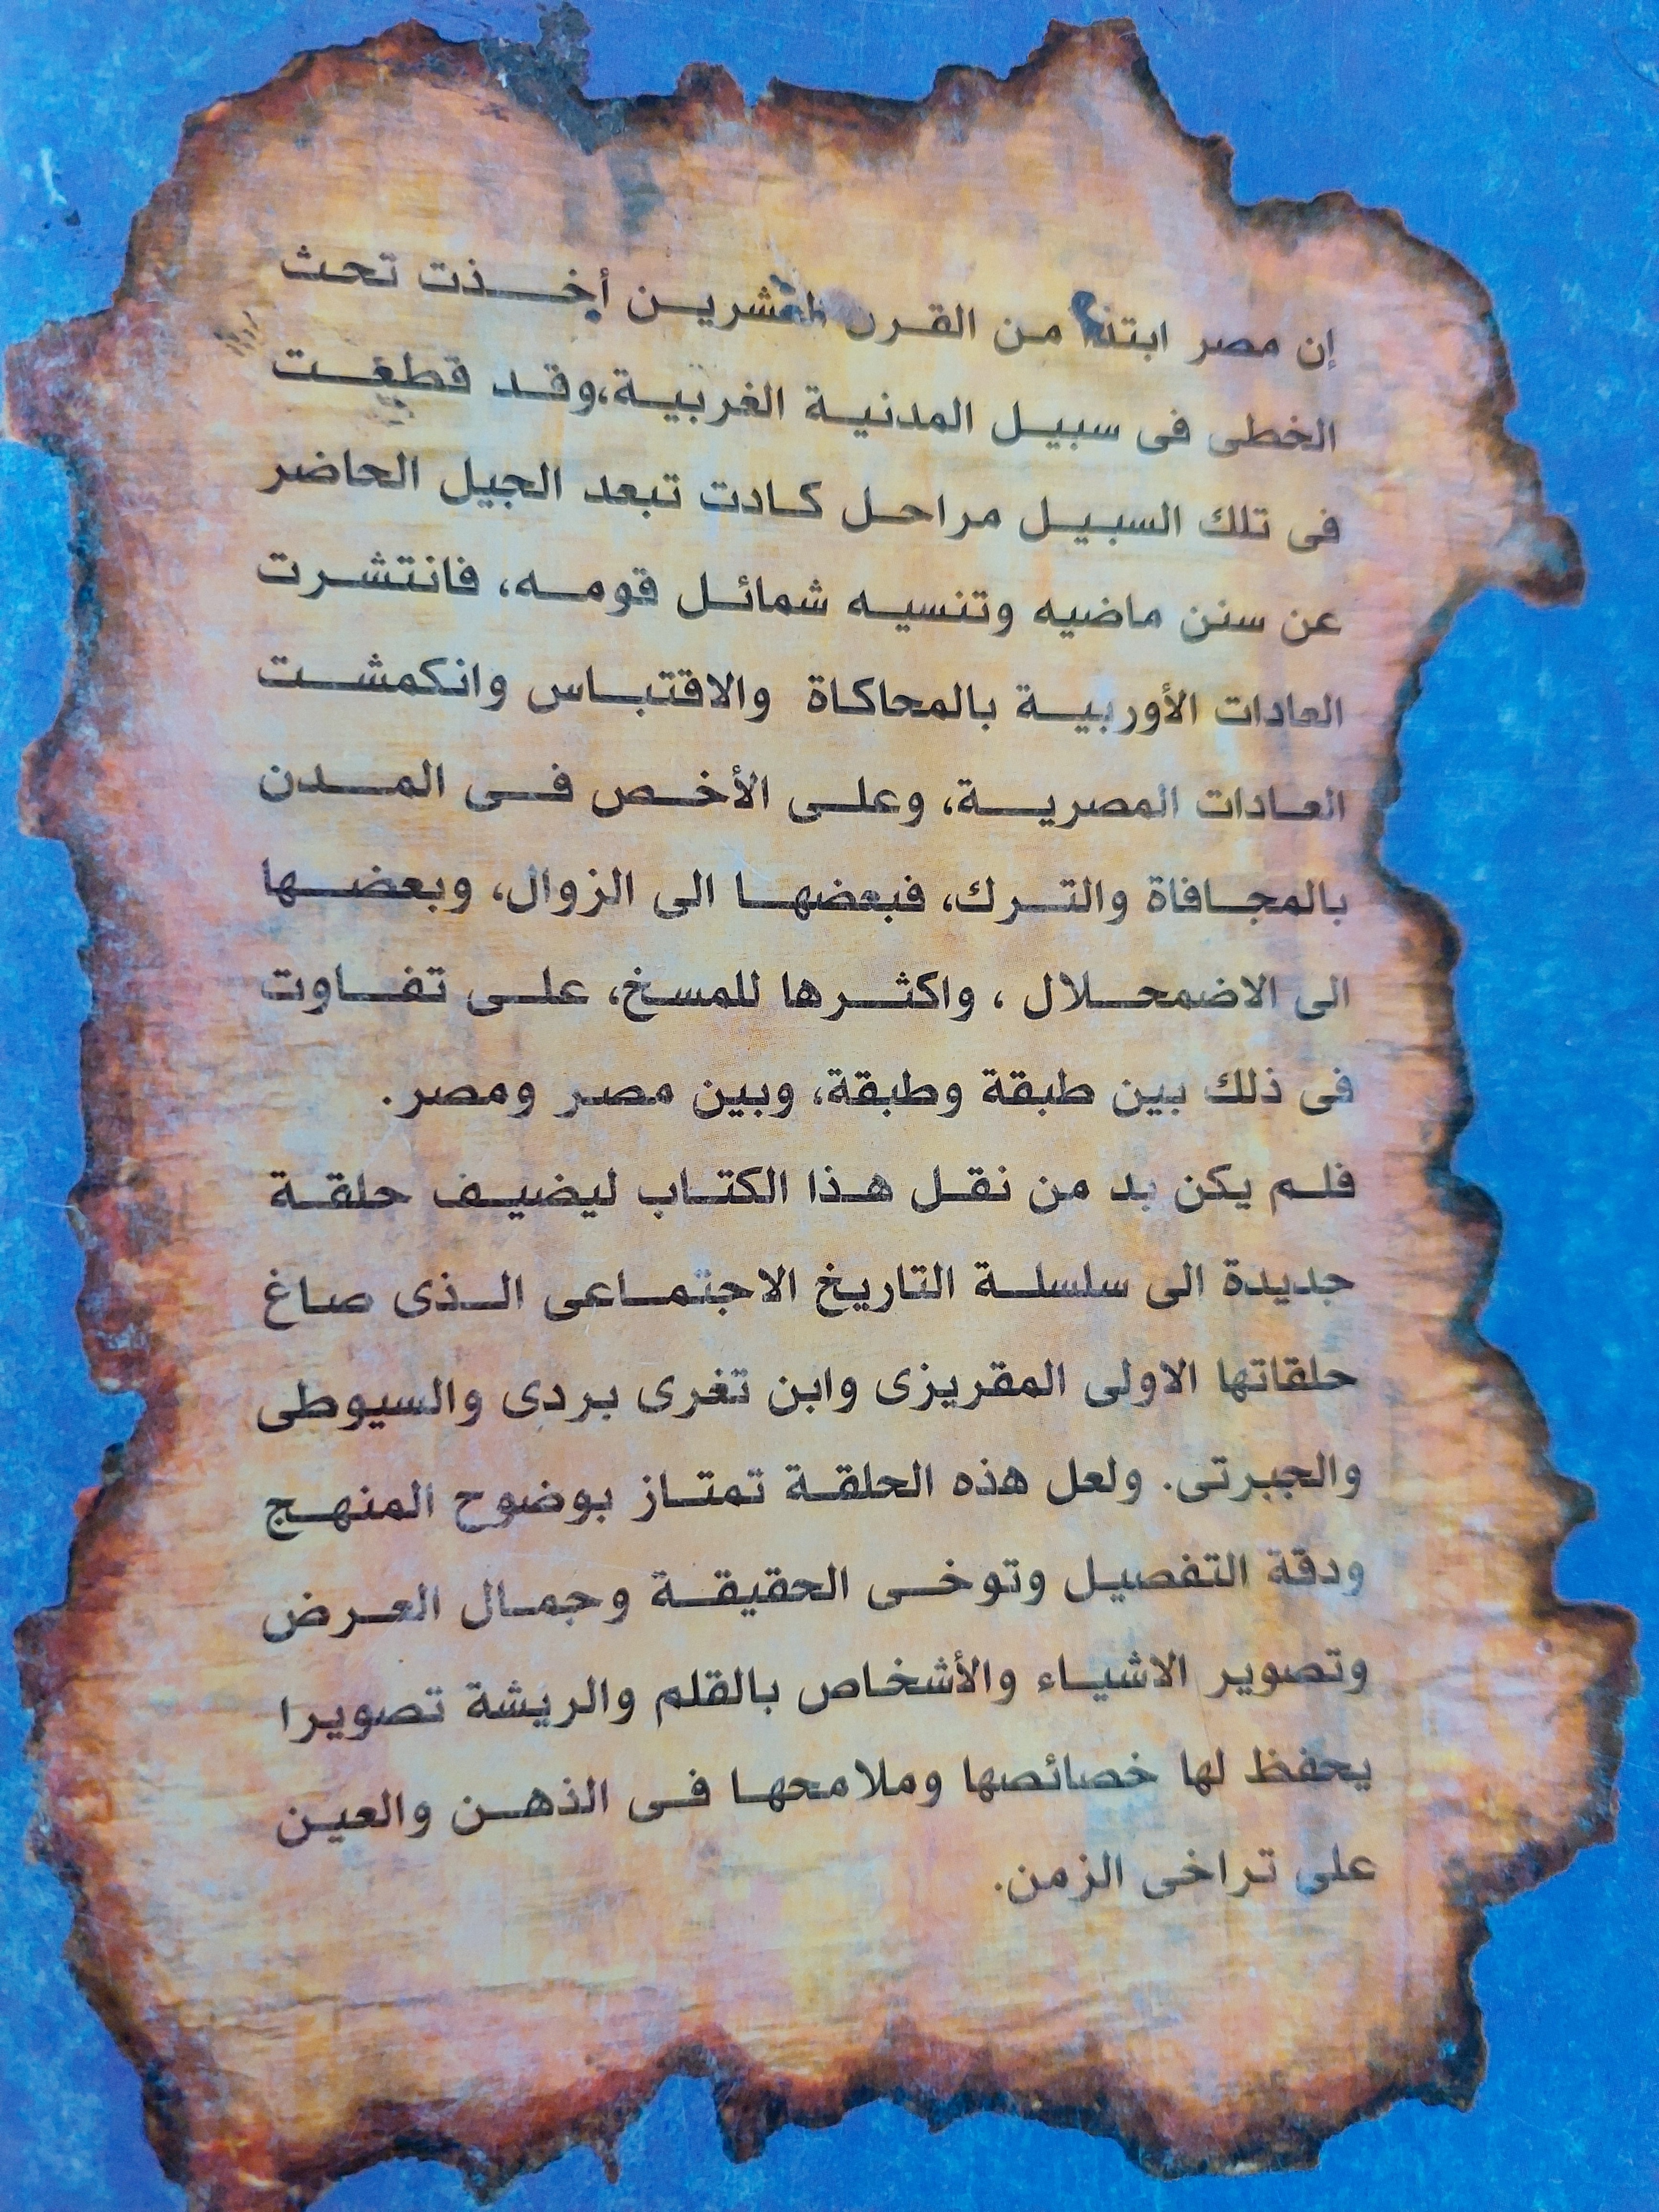 إن مصر ابتد من القرن العشريـن أخـذت تحث
الخطى فى سبيـل المدنيـة الغربيـة،وقـد قطعـت
فى تلك السبيـل مراحـل كـادت تبعد الجيل الحاضر
عن سنن ماضيه وتنسيـه شمائـل قومـه، فانتشـرت
العادات الأوربيـة بالمحاكاة والاقتبـاس وانكمشـت
العـادات المصريـة، وعلـى الأخـص فـى المـدن
بالمجـافاة والتـرك، فبعضهـا الى الزوال، وبعضـها
الى الاضمحـلال ، واكثـرها للمسـخ، علـى تفـاوت
فى ذلك بين طبقة وطبقة، وبين مصر ومصر.
فلـم يكن بد من نقـل هـذا الكتـاب ليضيـف حلقـة
جديدة الى سلسلـة التاريخ الاجتمـاعى الـذى صـاغ
حلقاتها الاولى المقريزى وابن تغرى بردى والسيوطى
والجبرتى. ولعل هذه الحلقـة تمتـاز بوضوح المنهـج
ودقة التفصيـل وتوخـى الحقيقـة وجمـال العـرض
وتصوير الاشيـاء والأشخـاص بالقلم والريشة تصويرا
يحفظ لها خصائصها وملامحهـا فـى الذهـن والعيـن
على تراخى الزمن.